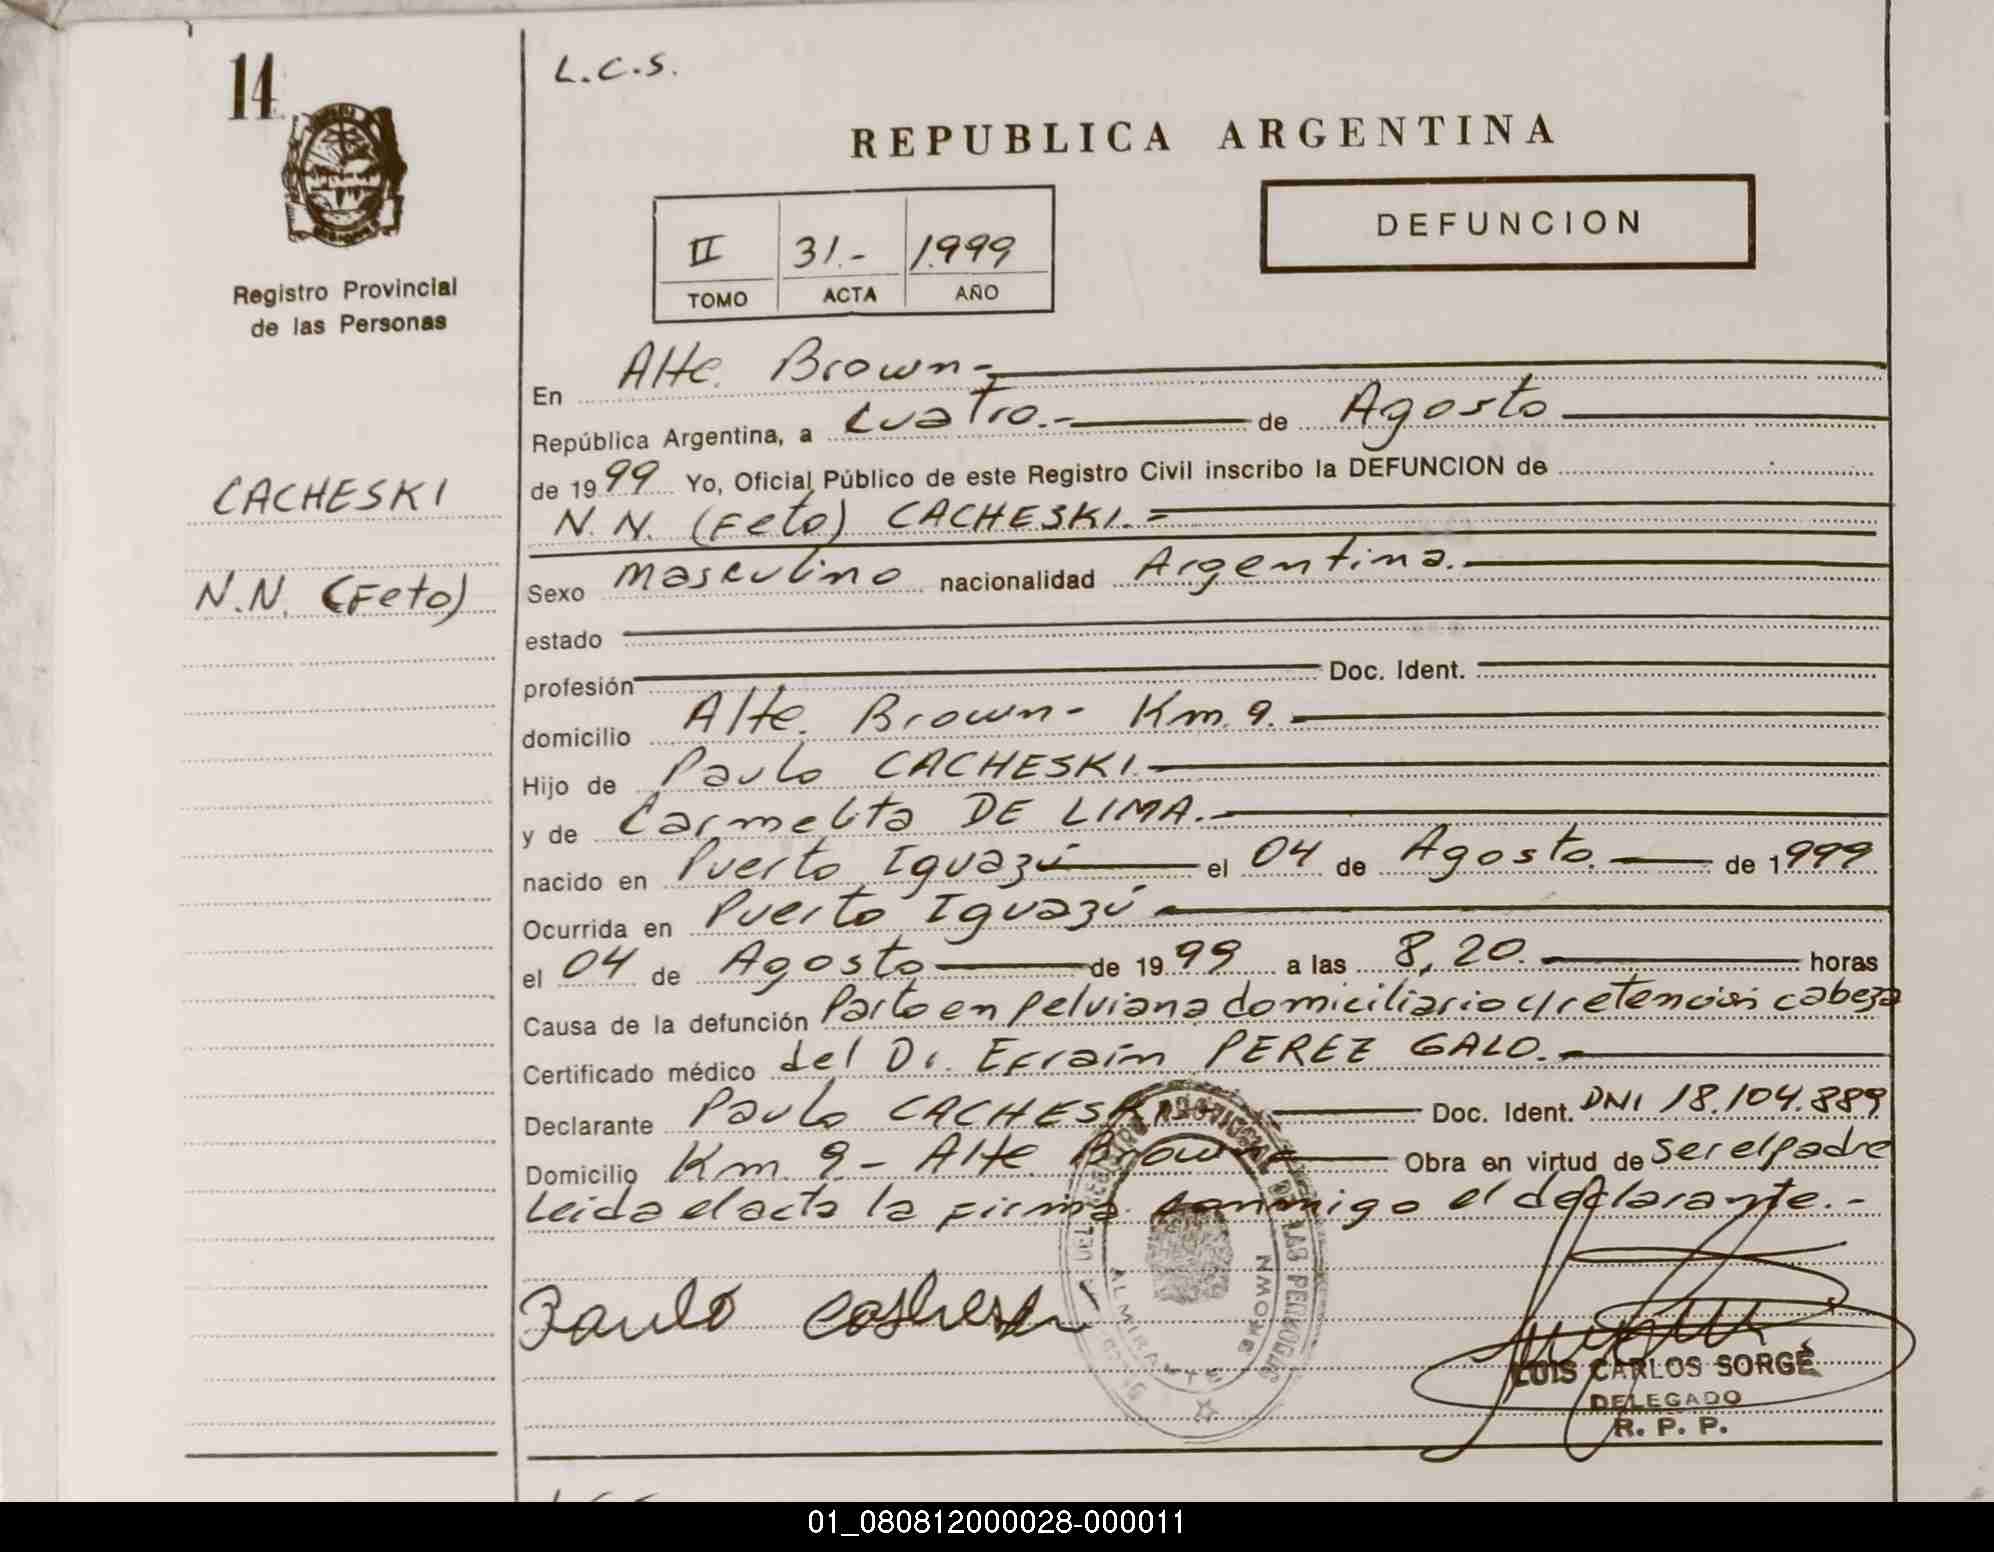 14
L.C.S.
REPUBLICA ARGENTINA
II 31.- 1.999
TOMO ACTA AÑO
DEFUNCION
Registro Provincial
de las Personas
CACHESKI
N.N. (Feto)
En Alte. Brown-
República Argentina, a Cuatro.- de Agosto
de 1999 Yo, Oficial Público de este Registro Civil inscribo la DEFUNCION de
N.N. (Feto) CACHESKI.=
Sexo masculino nacionalidad Argentina.
estado
profesión Doc. Ident.
domicilio Alte. Brown- Km. 9.
Hijo de Paulo CACHESKI.
y de Carmelita DE LIMA.
nacido en Puerto Iguazú el 04 de Agosto. de 1999
Ocurrida en Puerto Iguazú
el 04 de Agosto de 1999 a las 8,20. horas
Causa de la defunción Parto en pelviana domiciliario y retención cabeza
Certificado médico del Dr. Efraín PEREZ GALO.
Declarante Paulo CACHESKI Doc. Ident. DNI 18.104.889
Domicilio Km. 9- Alte. Brown Obra en virtud de ser el padre
Leida el acta la firma conmigo el declarante.-
Paulo Cacheski
REGISTRO PROVINCIAL DE LAS PERSONAS
ALMIRANTE BROWN
LUIS CARLOS SORGÉ
DELEGADO
R. P. P.
01_080812000028-000011